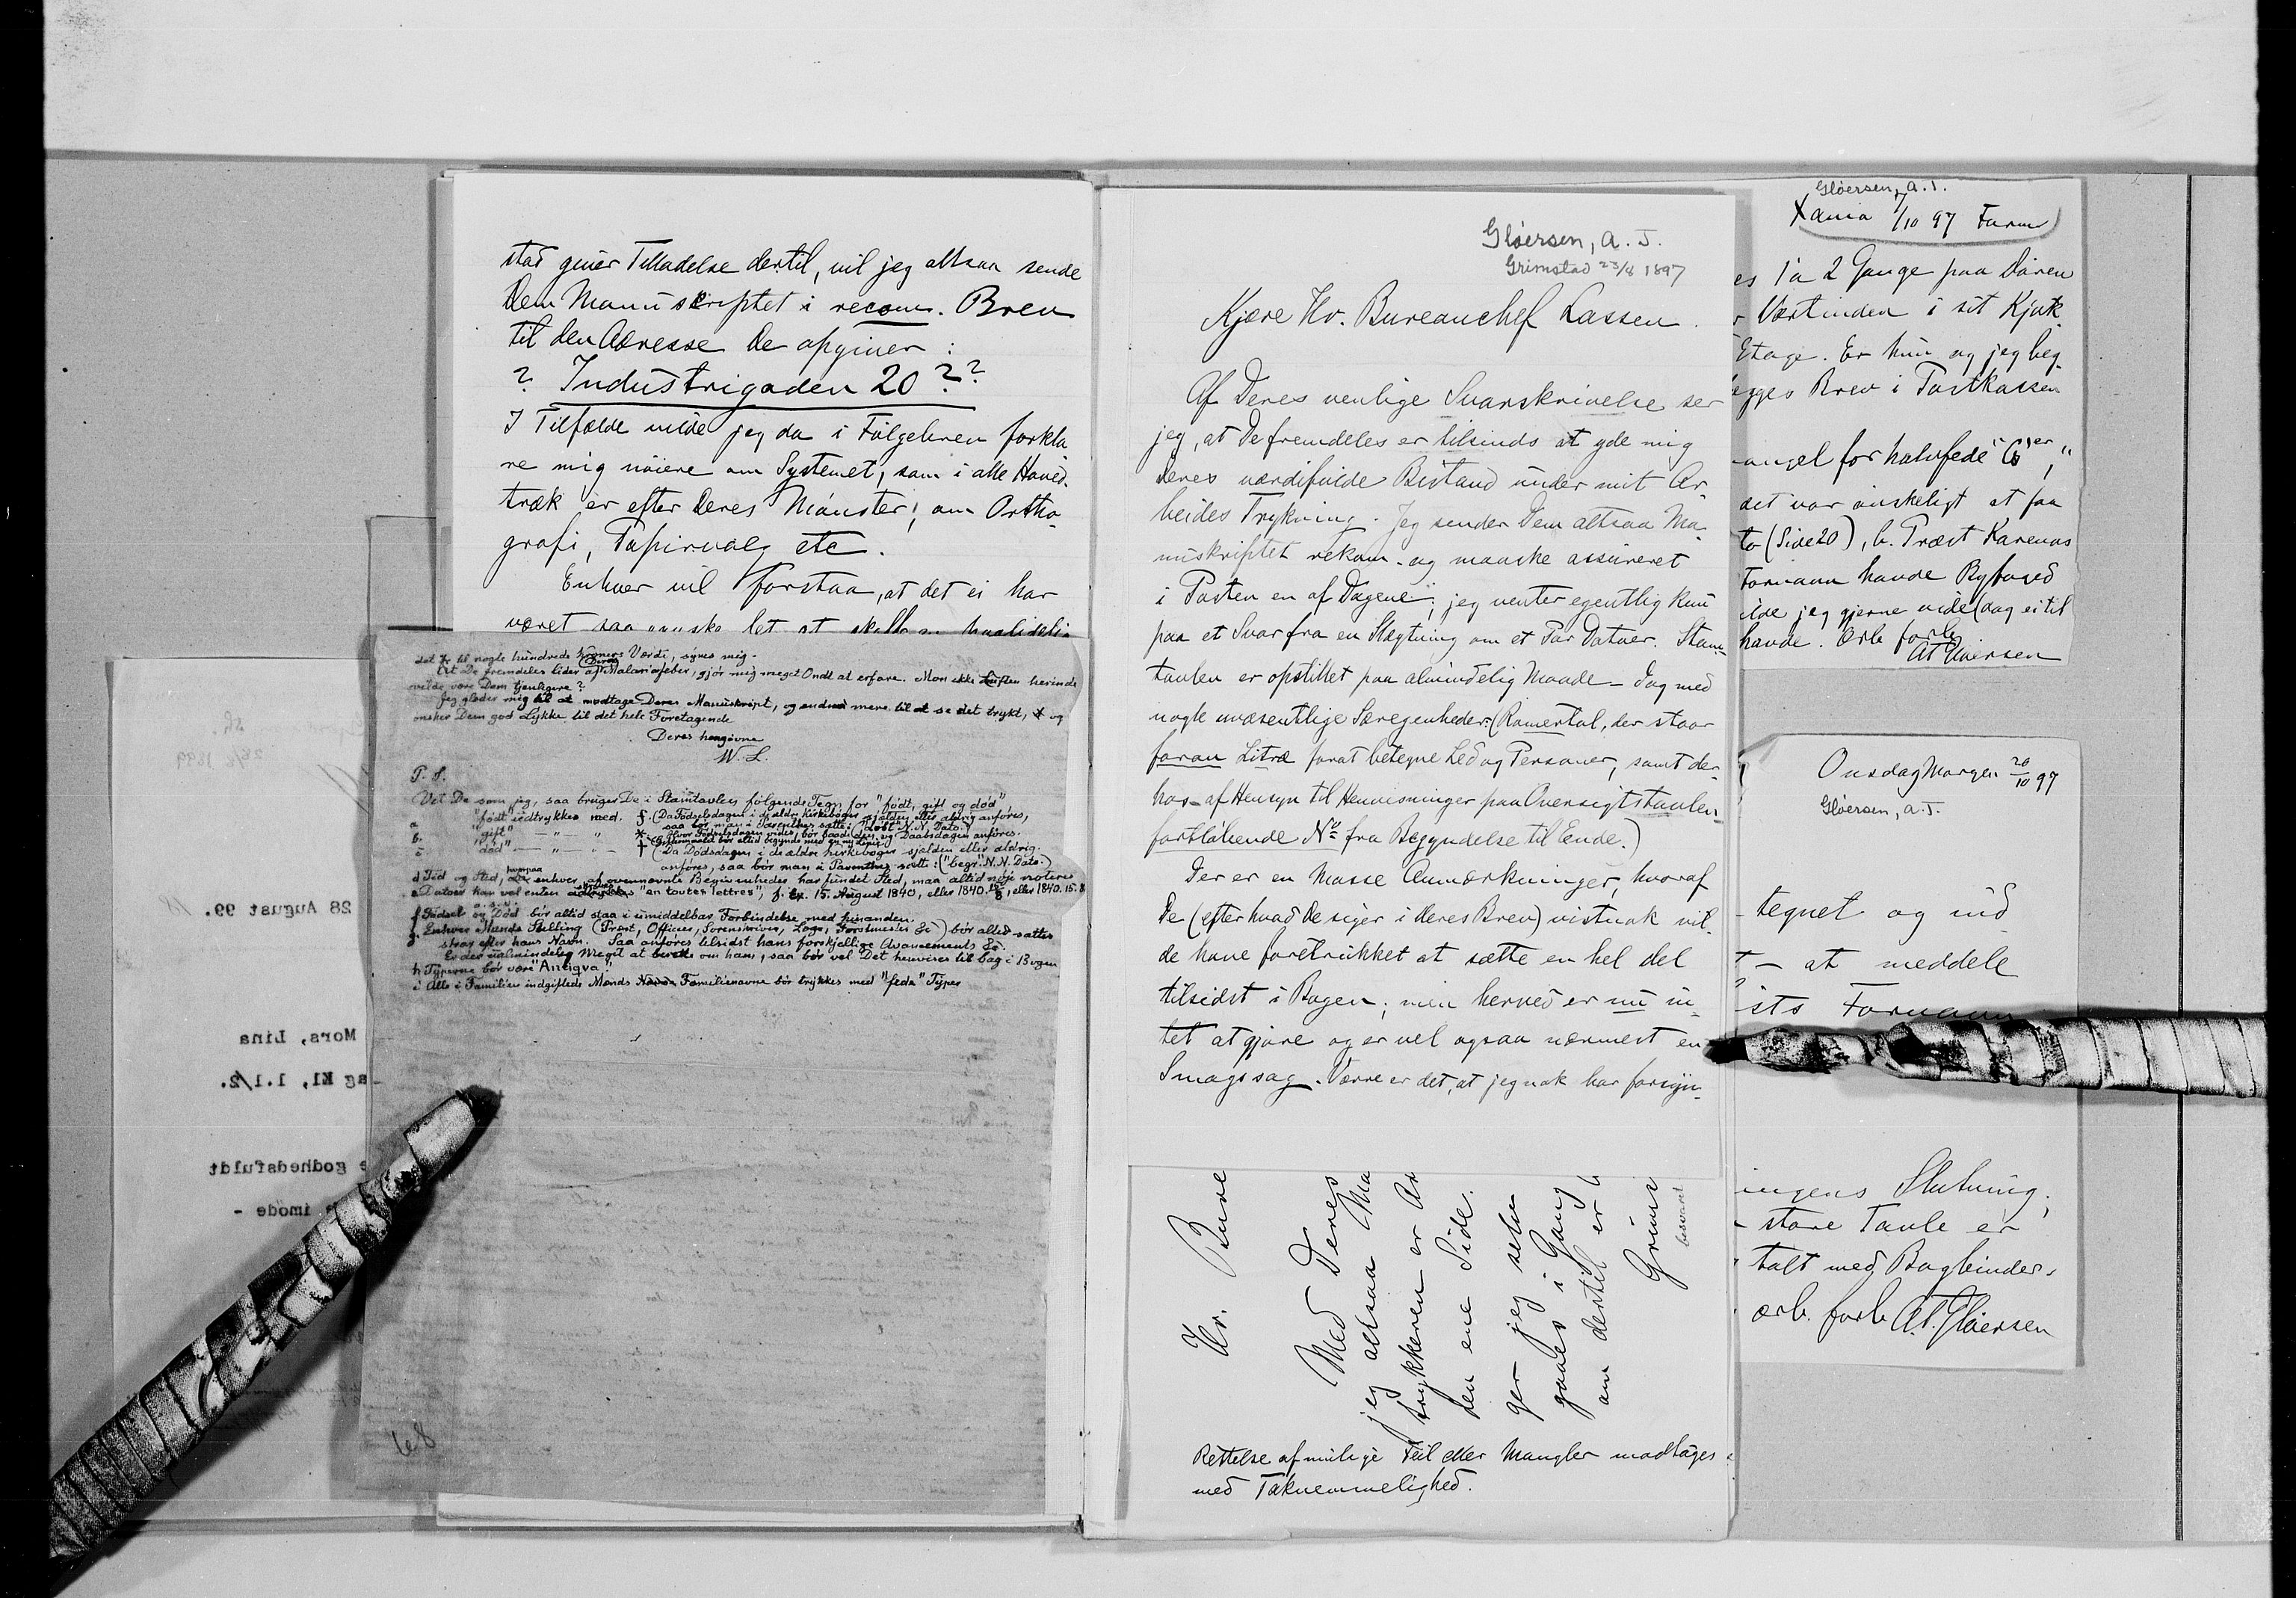 stad giver Tilladelse dertil, vil jeg altsaa sende
Dem Manuskriptet i recom. Brev
til den Adresse De opgiver:
? Industrigaden 20 ??
I Tilfælde vilde jeg da i Følgebrev forkla
re mig nöiere om Systemet, som i alle Hoved-
træk er efter Deres Mönster; om Ortho-
grafi, Papirvalg etc.
Enhver vil forstaa, at det ei har
været saa ganske let at
det Kr til nogle hundrede Kroners Værdi, synes mig.
At De fremdeles lider af Malariafeber, gjör mig meget Ondt at erfare. Mon ikke Luften herinde
vilde være Dem tjenligere?
Jeg glæder mig til at modtage Deres Manuskript, og endnu mere til at se det trykt, og
önsker Dem god Lykke til det hele Foretagende
Deres hengivne
W. L.
P. S.
Vil De som jeg, saa bruger De i Stamtavlen fölgende Tegn for "födt, gift og död"
a "födt" udtrykkes med f. (Da Födselsdagen i de ældre Kirkeböger sjælden eller aldrig anföres,
saa bör man i Parenthes sætte: (döbt N.N. Dato.)
(Hvor Födselsdagen vides, bör baade den og Daabsdagen anföres.
b. "gift" — „ — „ *. (Giftermaal bör altid begynde med en ny Linje)
c "död" — „ — „ — † (Da Dödsdagen i de ældre Kirkeböger sjælden eller aldrig
anföres, saa bör man i Parenthes sætte: ("begr." N.N. Dato.)
d Tid og Sted, hvorpaa enhver af ovennævnte Begivenheder har fundet Sted, maa altid nöje noteres
e Datoer kan vel enten "en toutes lettres", f. Ex. 15. August 1840, eller 1840. 15/8, eller 1840. 15-8
o.s.v.
f Födsel og Död bör altid staa i umiddelbar Forbindelse med hinanden.
g. Enhver Mands Stilling (Præst, Officer, Sorenskriver, Læge, Forstmester &c) bör altid sættes
strax efter hans Navn. Saa anföres tilsidst hans forskjellige Avancements &c.
Er der ualmindelig Meget at berette om ham, saa bör vel Det henvises til bag i Bogen
h Typerne bör være "Antiqva".
i Alle i Familien indgiftede Mænds Familienavne bör trykkes med "fede" Typer
68
28 August 99.
Mors, Lina
ag Kl, 1.1/2.
e godhedsfuldt
imöde -
Glöersen, A. T.
Grimstad 23/8 1897
Kjære Hr. Bureauchef Lassen.
Af Deres venlige Svarskrivelse ser
jeg, at De fremdeles er tilsinds at yde mig
Deres værdifulde Bistand under mit Ar-
beides Trykning. Jeg sender Dem altsaa Ma-
nuskriptet rekom. og maaske assureret
i Posten en af Dagene; jeg venter egentlig kun
paa et Svar fra en Slægtning om et Par Datoer. Stam-
tavlen er opstillet paa almindelig Maade – dog med
nogle uvæsentlige Særegenheder: (Romertal, der staar
foran Litra forat betegne Led og Personer, samt der-
hos – af Hensyn til Henvisninger paa Oversigtstavlen –
fortlöbende No fra Begyndelse til Ende.)
Der er en Masse Anmærkninger, hvoraf
De (efter hvad De siger i Deres Brev) vistnok vil-
de have foretrukket at sætte en hel del
tilsidst i Bogen; men herved er nu in-
tet at gjöre og er vel ogsaa nærmest en
Smagssag. Værre er det, at jeg nok har forsyn-
Hr. Bure
Med Deres
jeg altsaa Ma
trykkeren er Ar
den ene Side.
ger jeg selv
gaaes i Gang
om dertil er
Grims
besvaret
Rettelse af mulige Feil eller Mangler modtages
med Taknemmelighed.
Glöersen, A. T.
Xania 1/10 97 Form
es 1 à 2 Gange paa Dören
r Værtinden i sit Kjök
Etage. Er hun og jeg beg-
lægges Brev i Postkassen
angel for halvfede "G'er",
det var önskeligt at faa
to (Side 20), b. Præst Karenos
Fornavn havde Byfoged
ilde jeg gjerne vide (dog ei til
havde. Ærb forb
AT Glöersen
Onsdag Morgen 20/10 97
Glöersen, A. T.
tegnet og ind
– at meddele
ists Fornavn
ingens Slutning;
store Tavle er
talt med Bogbinder-
ærb. forb A.T. Glöersen